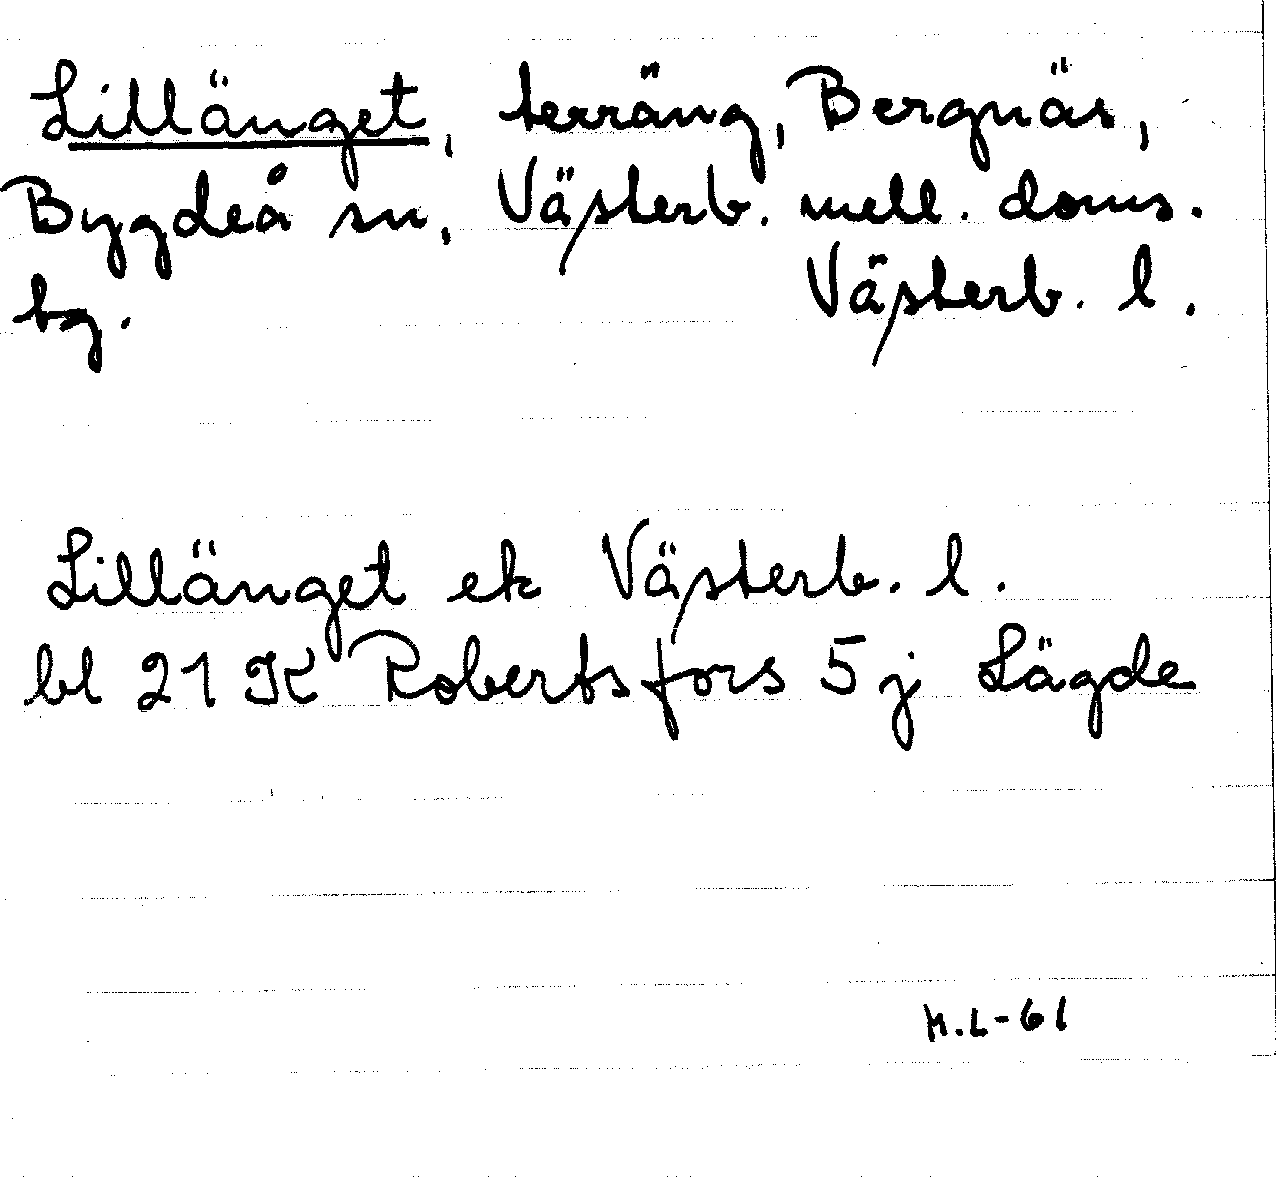 Lillänget, terräng, Bergnäs,
Bygdeå sn, Västerb. mell. doms.
tg. Västerb. l.
Lillänget ek Västerb. l.
bl 21 K Robertsfors 5 j Lägde
M.L-61